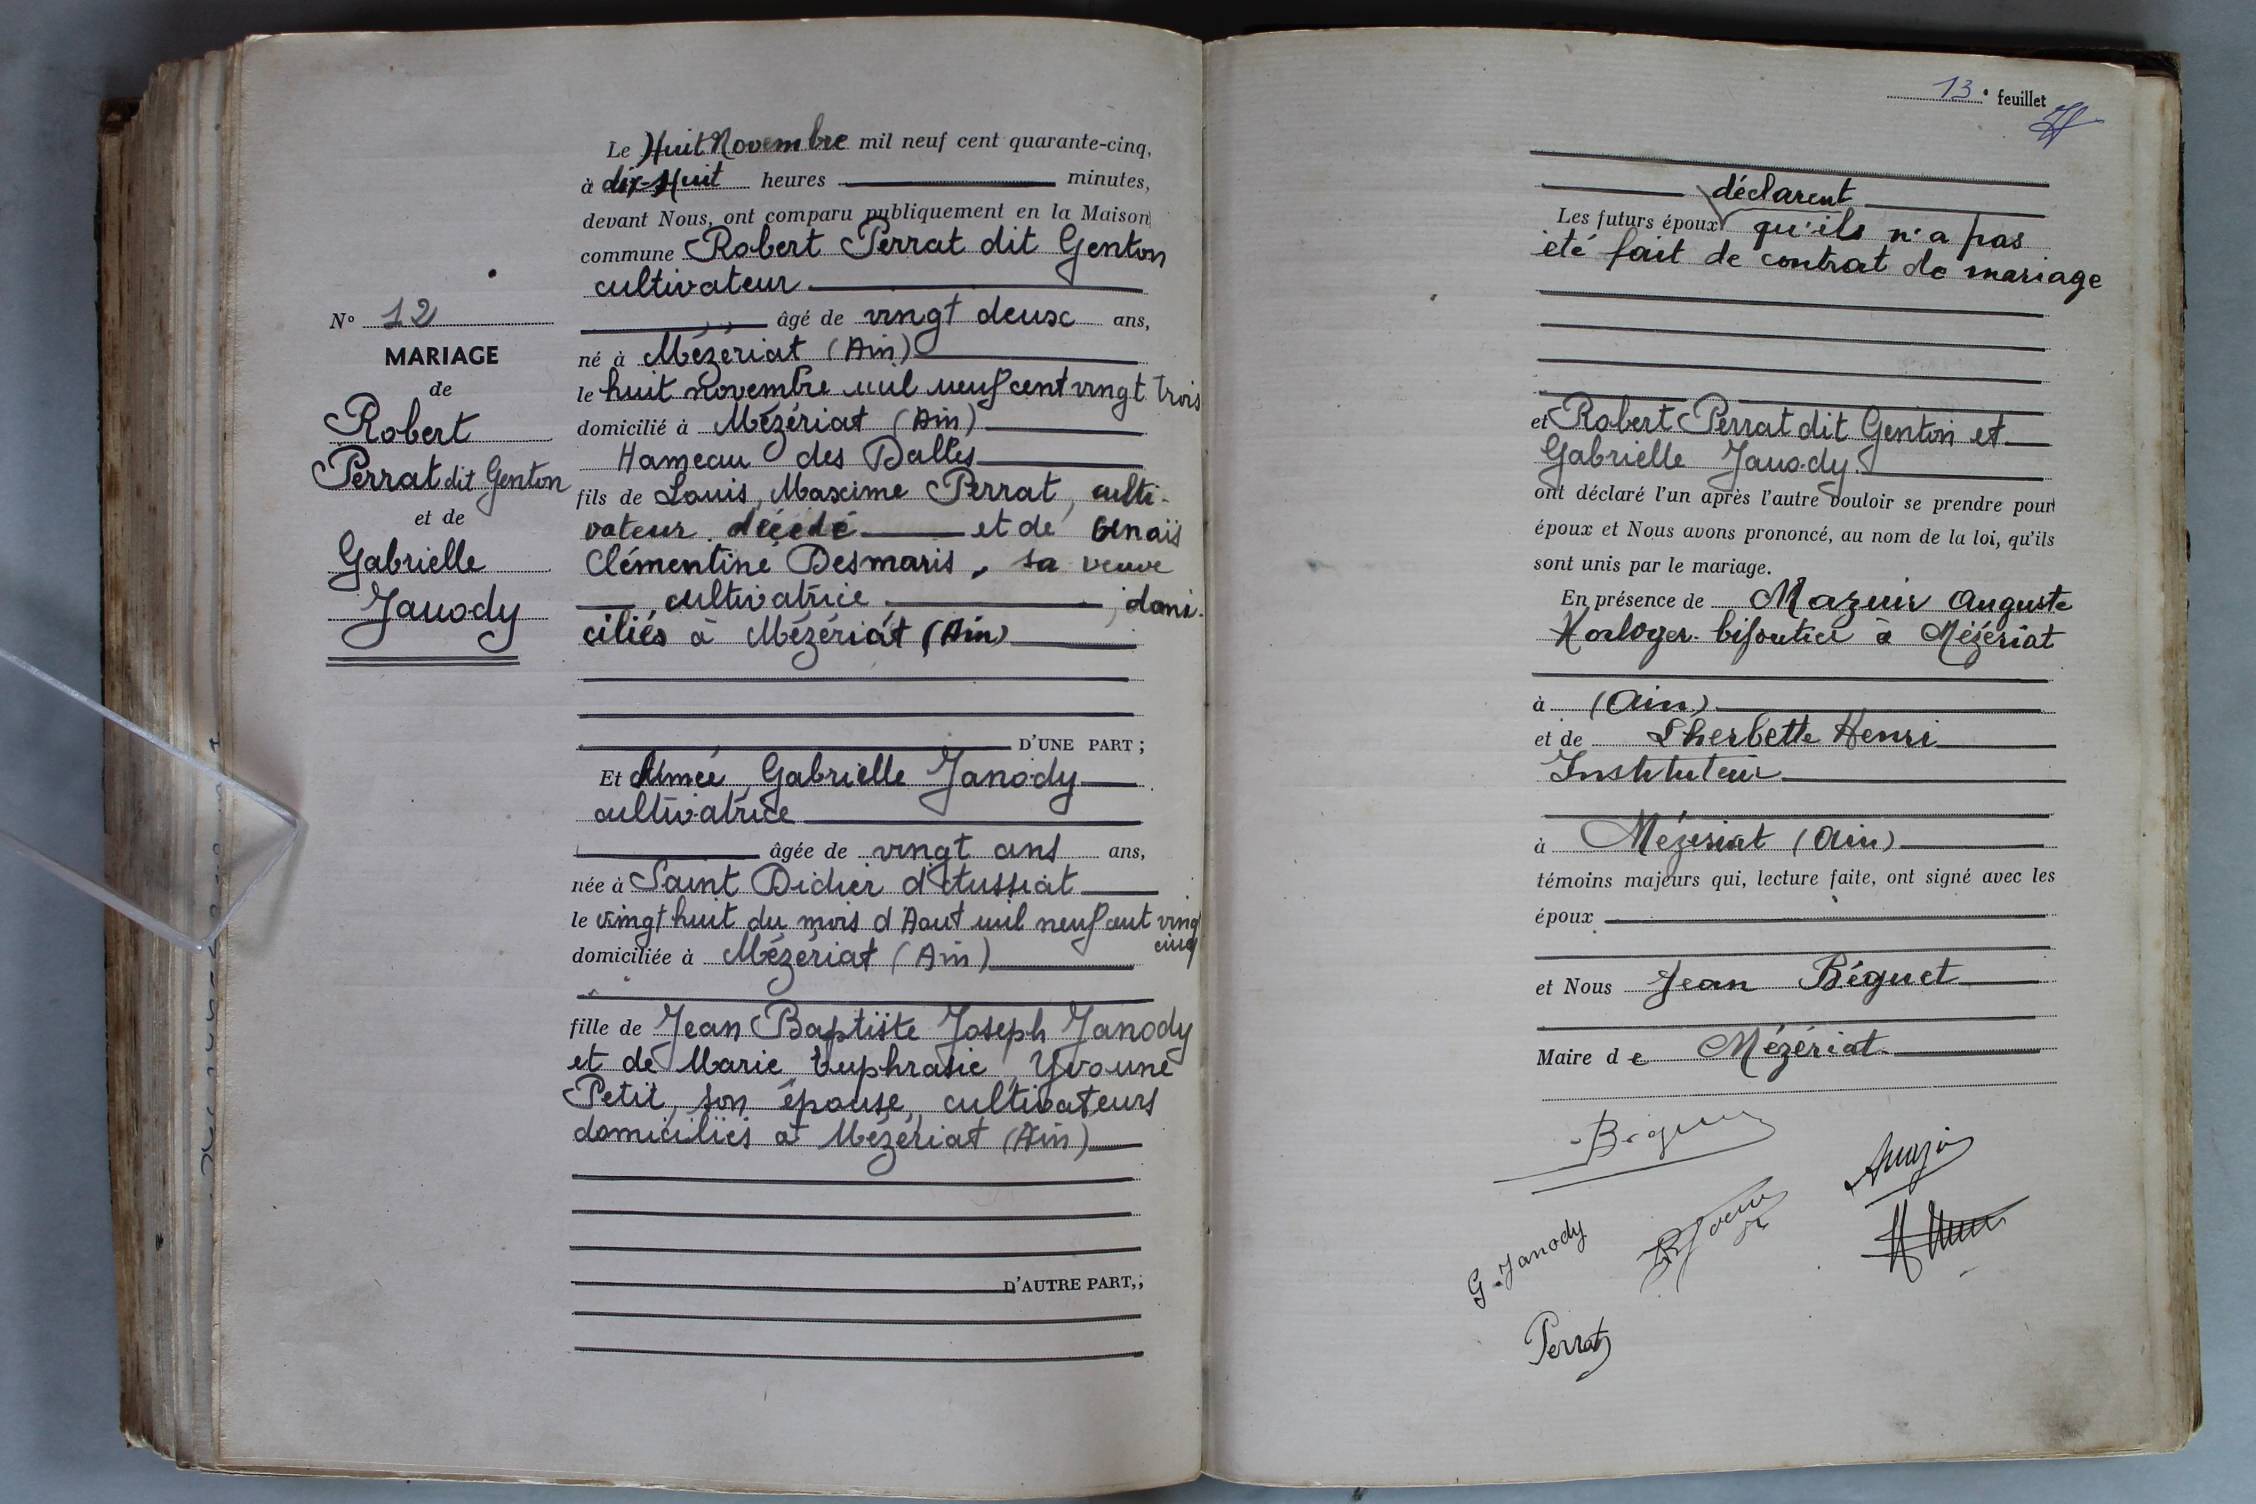 Le Huit Novembre mil neuf cent quarante-cinq,
à dix-Huit heures minutes,
devant Nous, ont comparu publiquement en la Maison
commune Robert Perrat dit Genton
cultivateur
âgé de vingt deux ans,
né à Mézériat (Ain)
le huit novembre mil neuf cent vingt trois
domicilié à Mézériat (Ain)
Hameau des Balles
fils de Louis, Maxime Perrat, culti-
vateur décédé et de
Clémentine Desmaris, sa veuve
cultivatrice ; domi-
ciliés à Mézériat (Ain)
D'UNE PART ;
Et Aimée Gabrielle Janody
cultivatrice
âgée de vingt ans ans,
née à Saint Didier d'Aussiat
le vingt huit du mois d'Aout mil neuf cent vingt
cinq
domiciliée à Mézériat (Ain)
fille de Jean Baptiste Joseph Janody
et de Marie Euphrasie Yvonne
Petit, son épouse, cultivateurs
domiciliés à Mézériat (Ain)
D'AUTRE PART,;
N° 12
MARIAGE
de
Robert
Perrat dit Genton
et de
Gabrielle
Janody
13 e feuillet
déclarent
Les futurs époux qu'ils n'a pas
été fait de contrat de mariage
et Robert Perrat dit Genton et
Gabrielle Janody
ont déclaré l'un après l'autre vouloir se prendre pour
époux et Nous avons prononcé, au nom de la loi, qu'ils
sont unis par le mariage.
En présence de Mazuir Auguste
Horloger bijoutier à Mézériat
à (Ain)
et de Lherbette Henri
Instituteur
à Mézériat (Ain)
témoins majeurs qui, lecture faite, ont signé avec les
époux
et Nous Jean Béguet
Maire de Mézériat
Béguet
G. Janody
Perrat